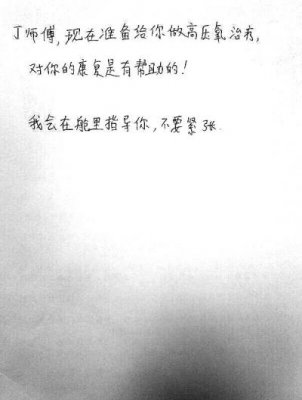 丁师傅,现在准备给你做高压氧治疗,
对你的康复是有帮助的!
我会在舱里指导你,不要紧张.